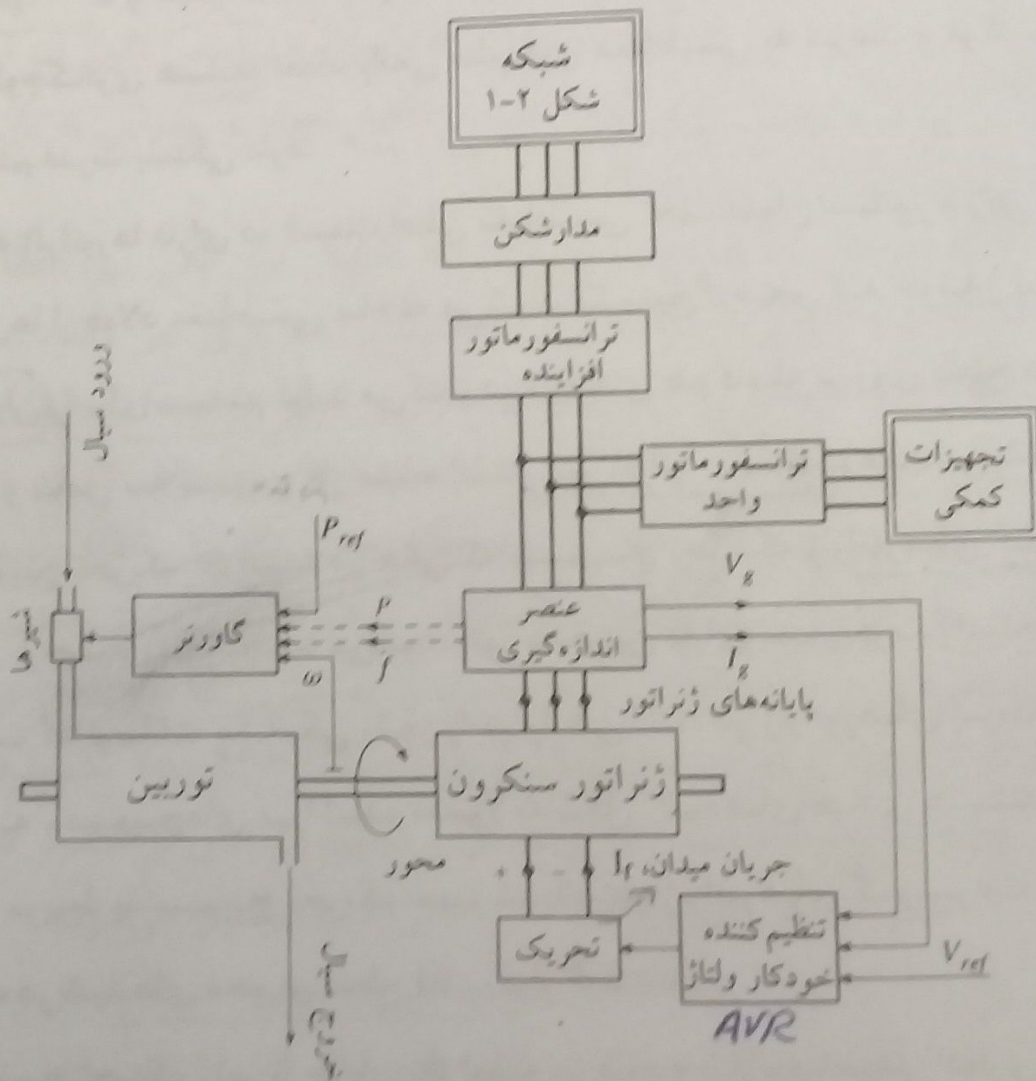 شبکه
شکل ۲-۱
مدارشکن
ترانسفورماتور
افزاینده
ورود سیال
ترانسفورماتور
واحد
تجهیزات
کمکی
P_ref
V_g
شیرها
گاورنر
P
f
ω
عنصر
اندازه‌گیری
I_g
پایانه‌های ژنراتور
توربین
ژنراتور سنکرون
محور
+
-
جریان میدان، I_f
تحریک
تنظیم کننده
خودکار ولتاژ
V_ref
AVR
خروج سیال